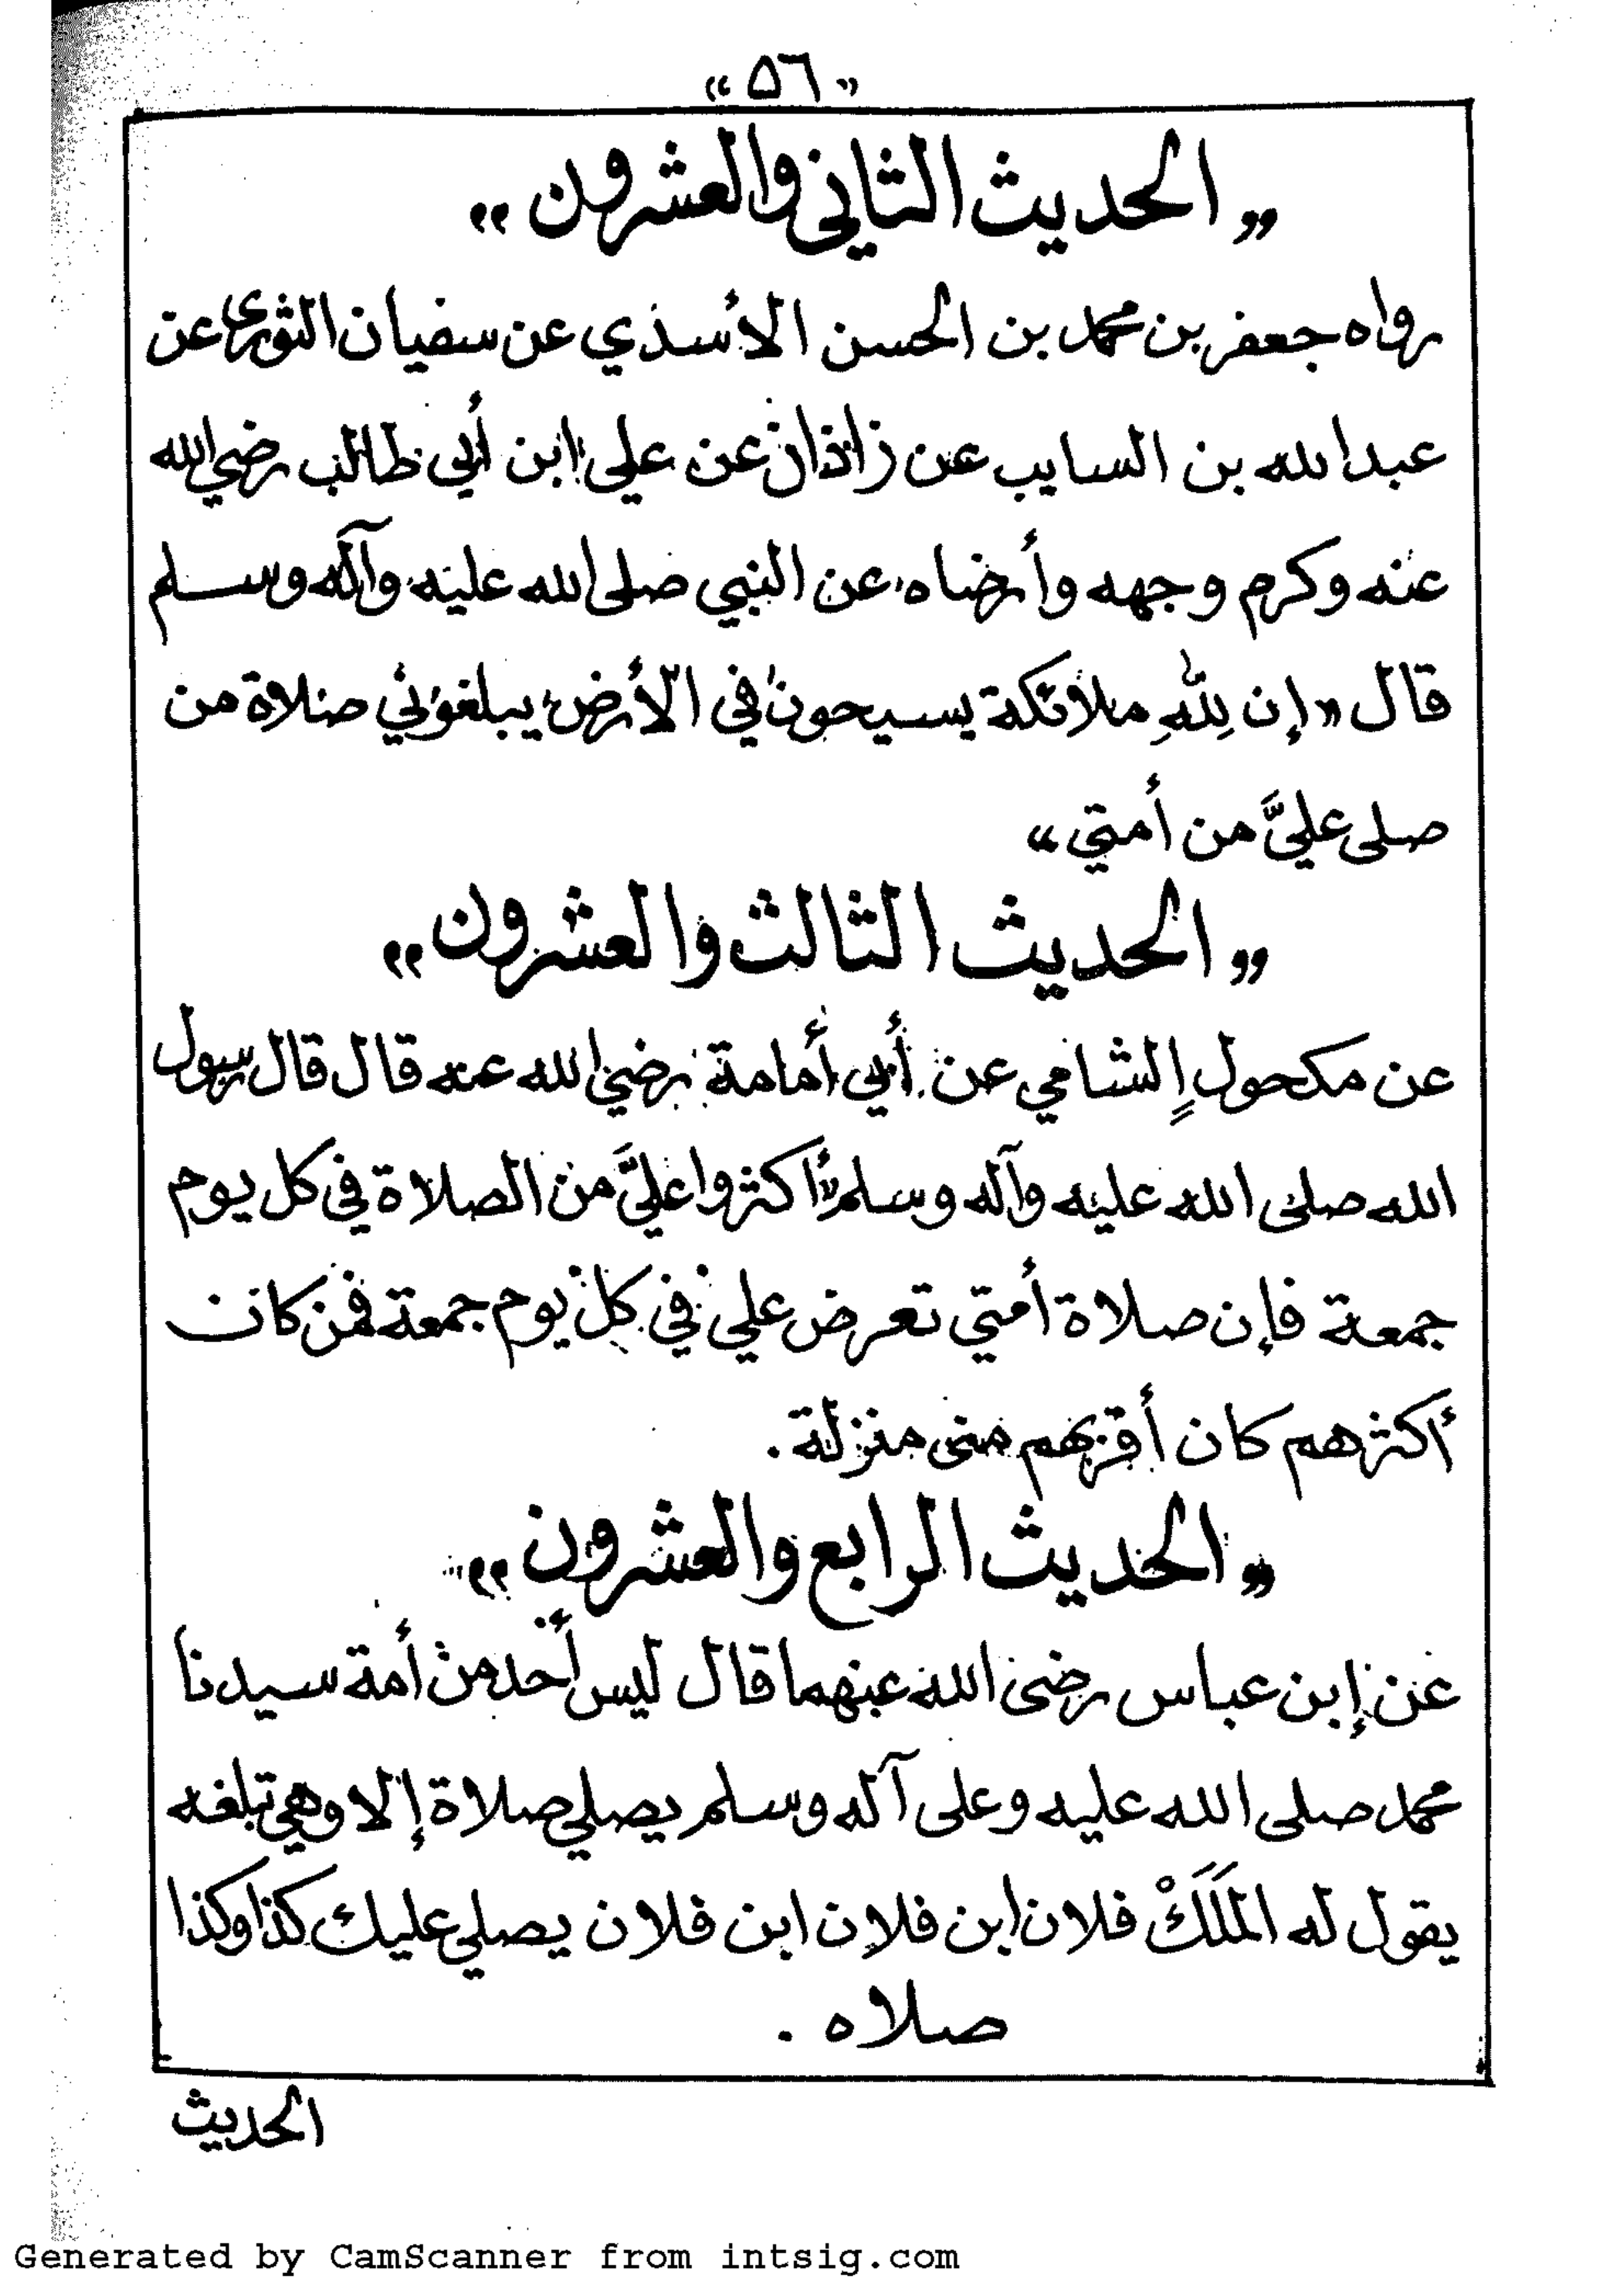 «٥٦»
«الحديث الثاني والعشرون»
رواه جعفر بن محمد بن الحسن الأسذي عن سفيان الثورى عن
عبدالله بن السايب عن زاذان عن علي ابن أبي طالب رضي الله
عنه وكرم وجهه وأرضاه عن النبي صلى الله عليه وآله وسلم
قال «إن لِلّٰهِ ملائكة يسيحون في الأرض يبلغوني صلاة من
صلى عليَّ من أمتي»
«الحديث الثالث والعشرون»
عن مكحولٍ الشامي عن أبي أمامة رضي الله عنه قال قال رسول
الله صلى الله عليه وآله وسلم «أكثروا عليَّ من الصلاة في كل يوم
جمعة فإن صلاة أمتي تعرض علي في كل يوم جمعة فمن كان
أكثرهم كان أقربهم منى منزلة.
«الحديث الرابع والعشرون»
عن إبن عباس رضى الله عنهما قال ليس أحد من أمة سيدنا
محمد صلى الله عليه وعلى آله وسلم يصلي صلاة إلا وهي تبلغه
يقول له المَلَكْ فلان ابن فلان ابن فلان يصلي عليك كذا وكذا
صلاه.
الحديث
Generated by CamScanner from intsig.com